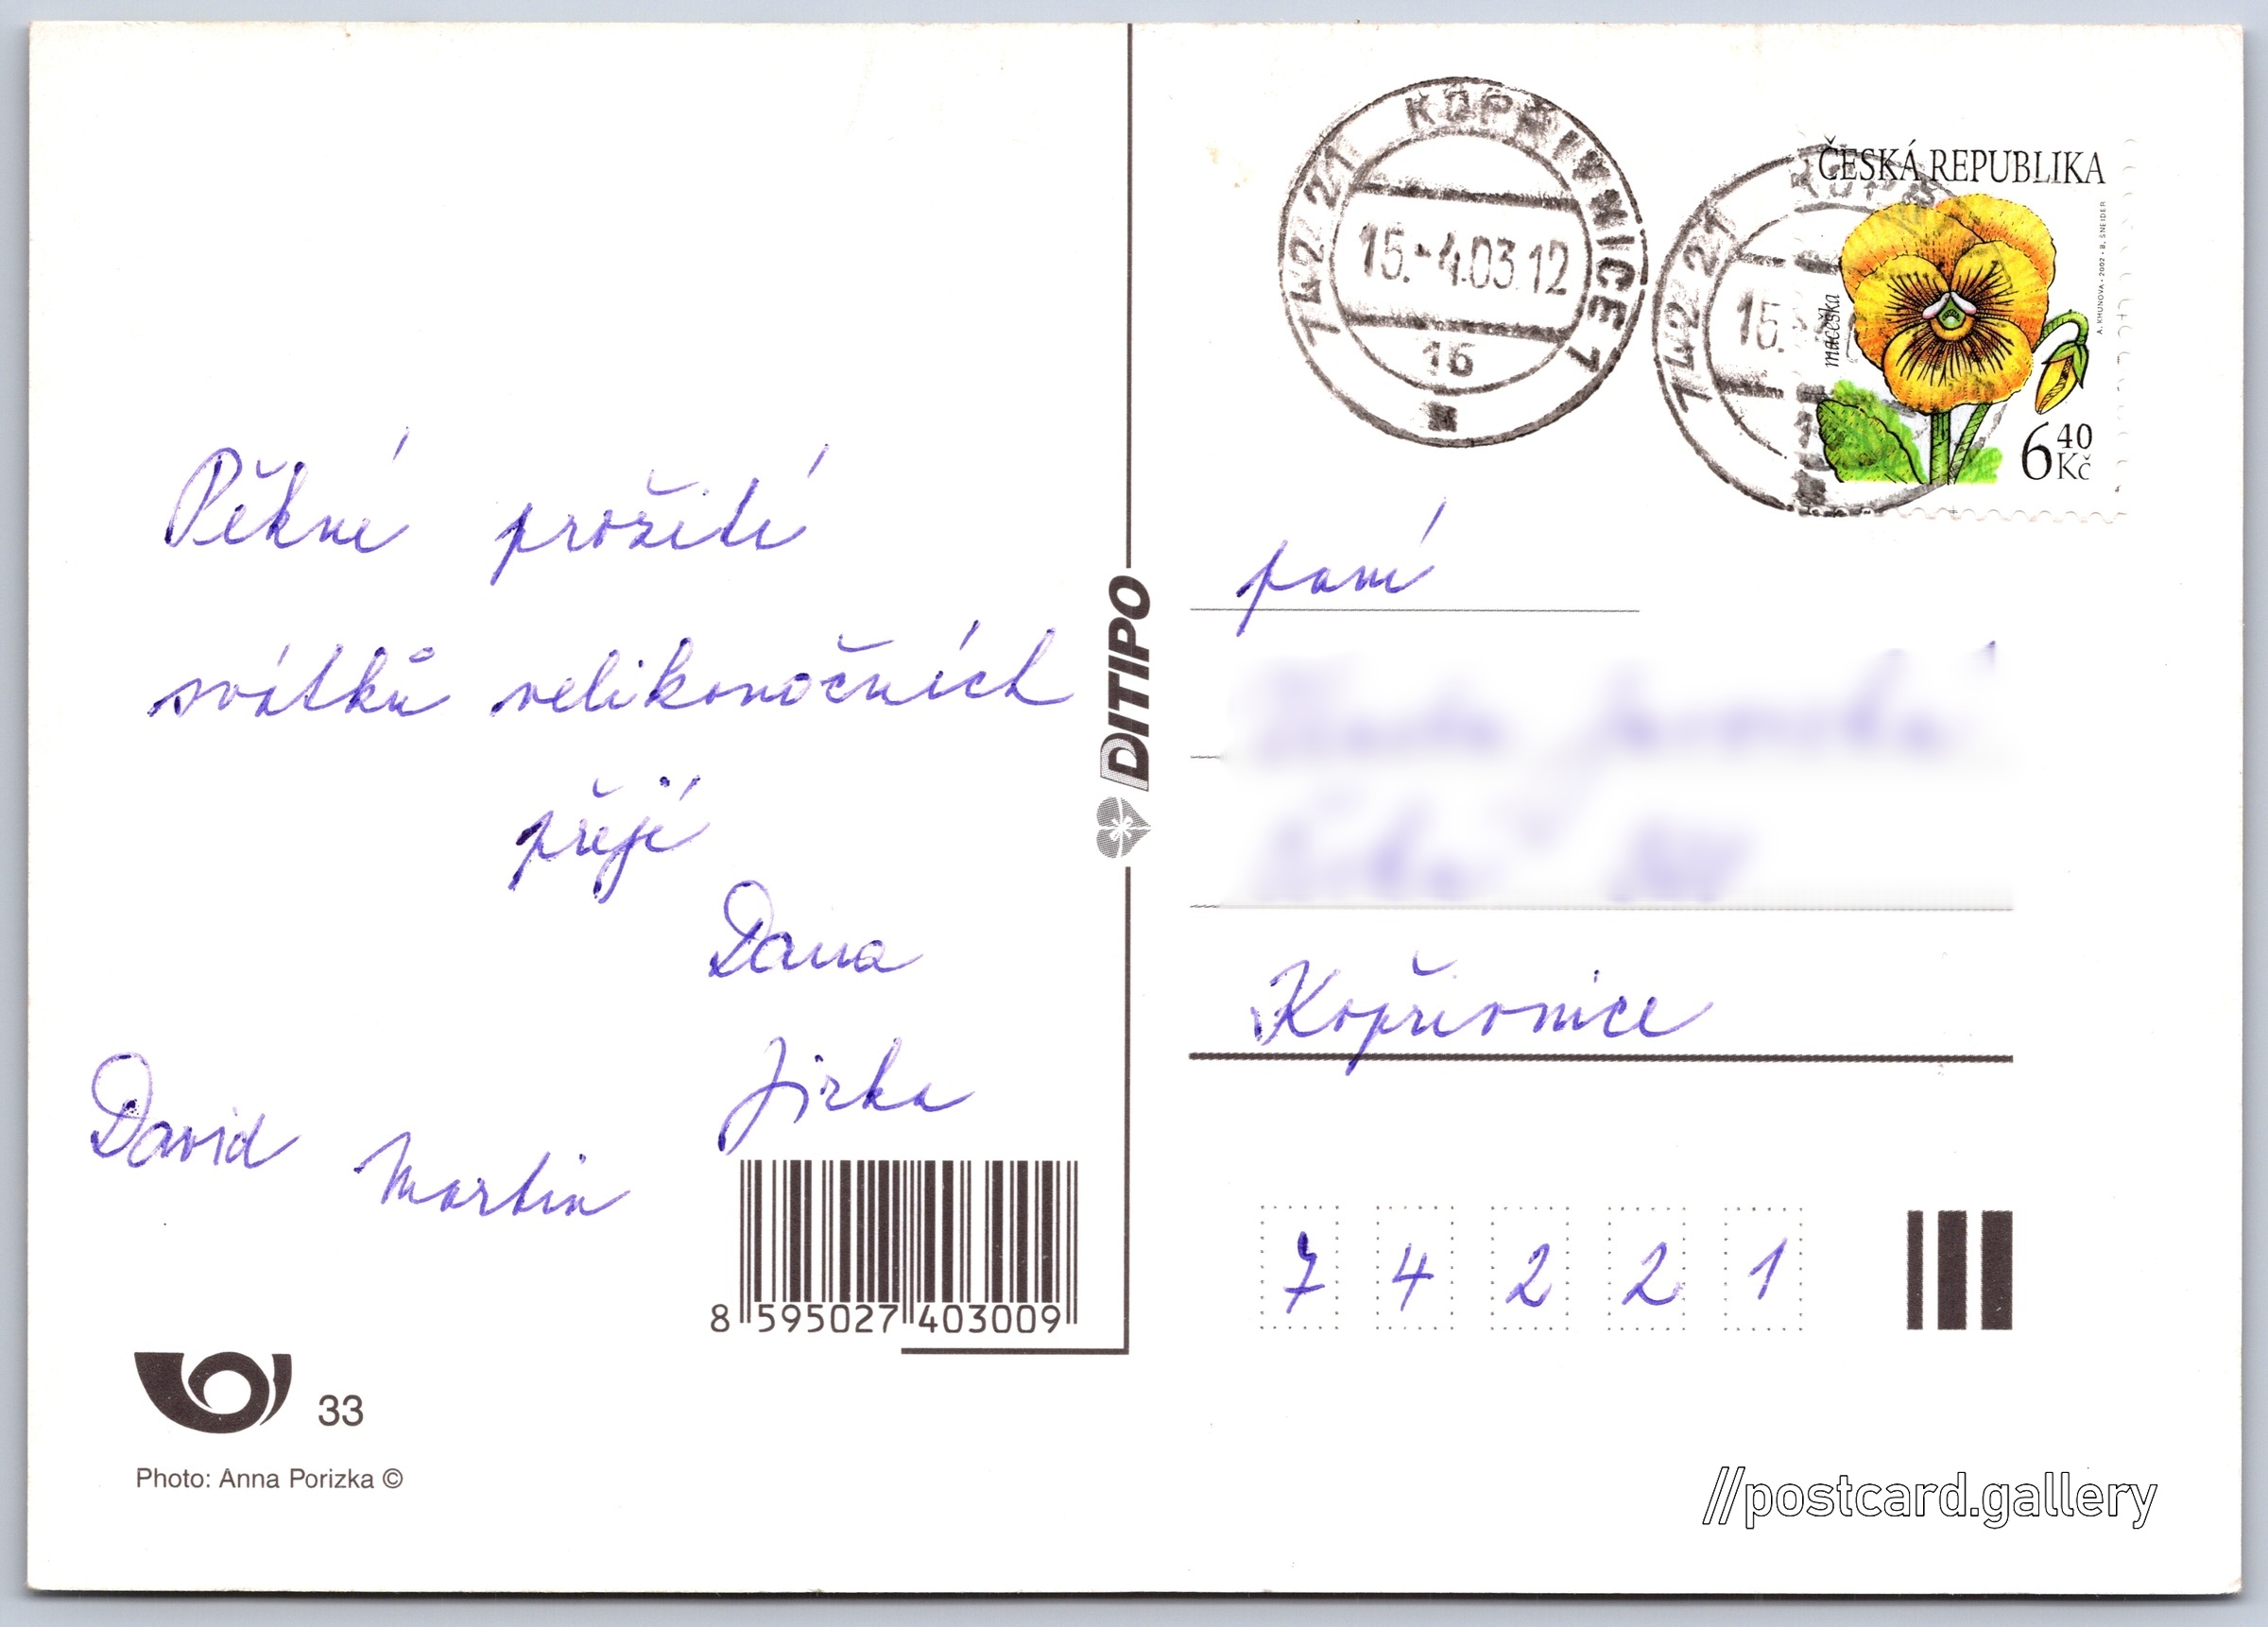 Pěkné prožití
svátků velikonočních
přejí
Dana
Jirka
David
Martin
8 595027 403009
33
Photo: Anna Porizka ©
DITIPO
742 21 KOPŘIVNICE 1
15.-4.03.12
16
742 21
15.
ČESKÁ REPUBLIKA
maceška
A. KHUNOVÁ - 2002 - B. ŠNEIDER
6 40 Kč
paní
Kopřivnice
7 4 2 2 1
//postcard.gallery